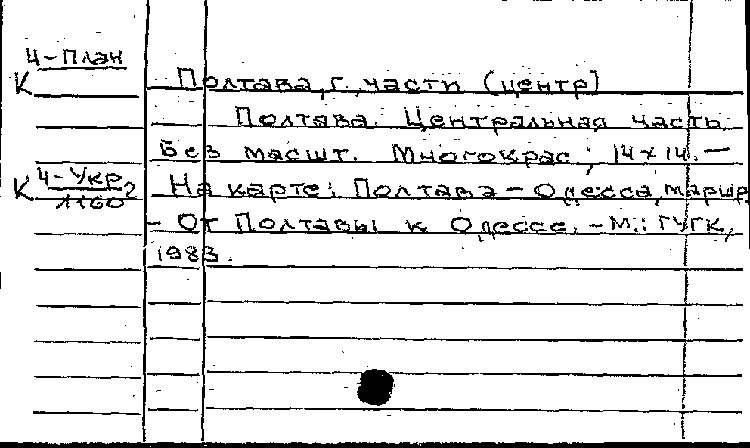 4-План
К
Полтава, г., части (центр)
Полтава. Центральная часть.
Без масшт. Многокрас.; 14х14. —
К 4-Укр
На карте: Полтава - Одесса, маршр.
- От Полтавы к Одессе. - М.: ГУГК,
1983.